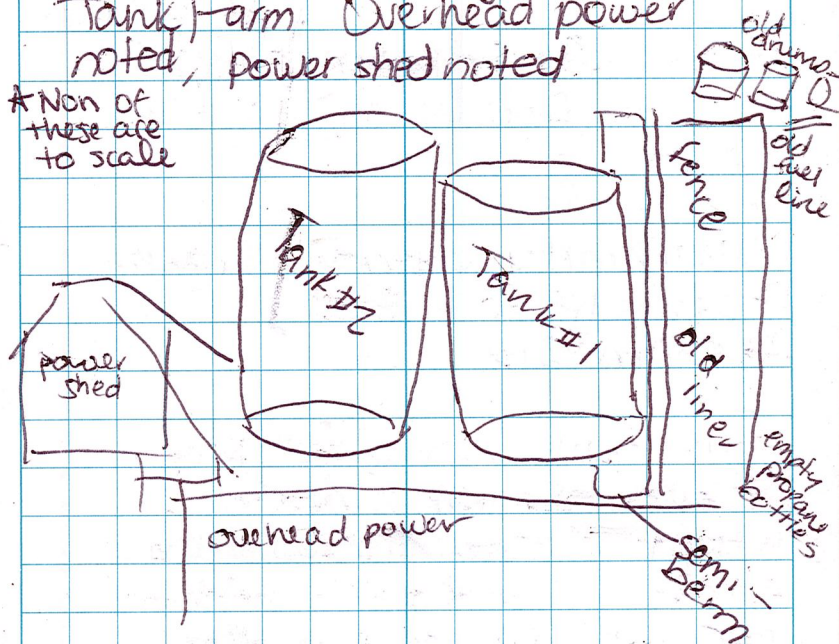 Tank Farm Overhead power
noted, power shed noted.
* Non of
these are
to scale
old
drums
Tank #2
Tank #1
fence
old
fuel
line
power
shed
old
liner
empty
propane
bottles
overhead power
semi-
berm